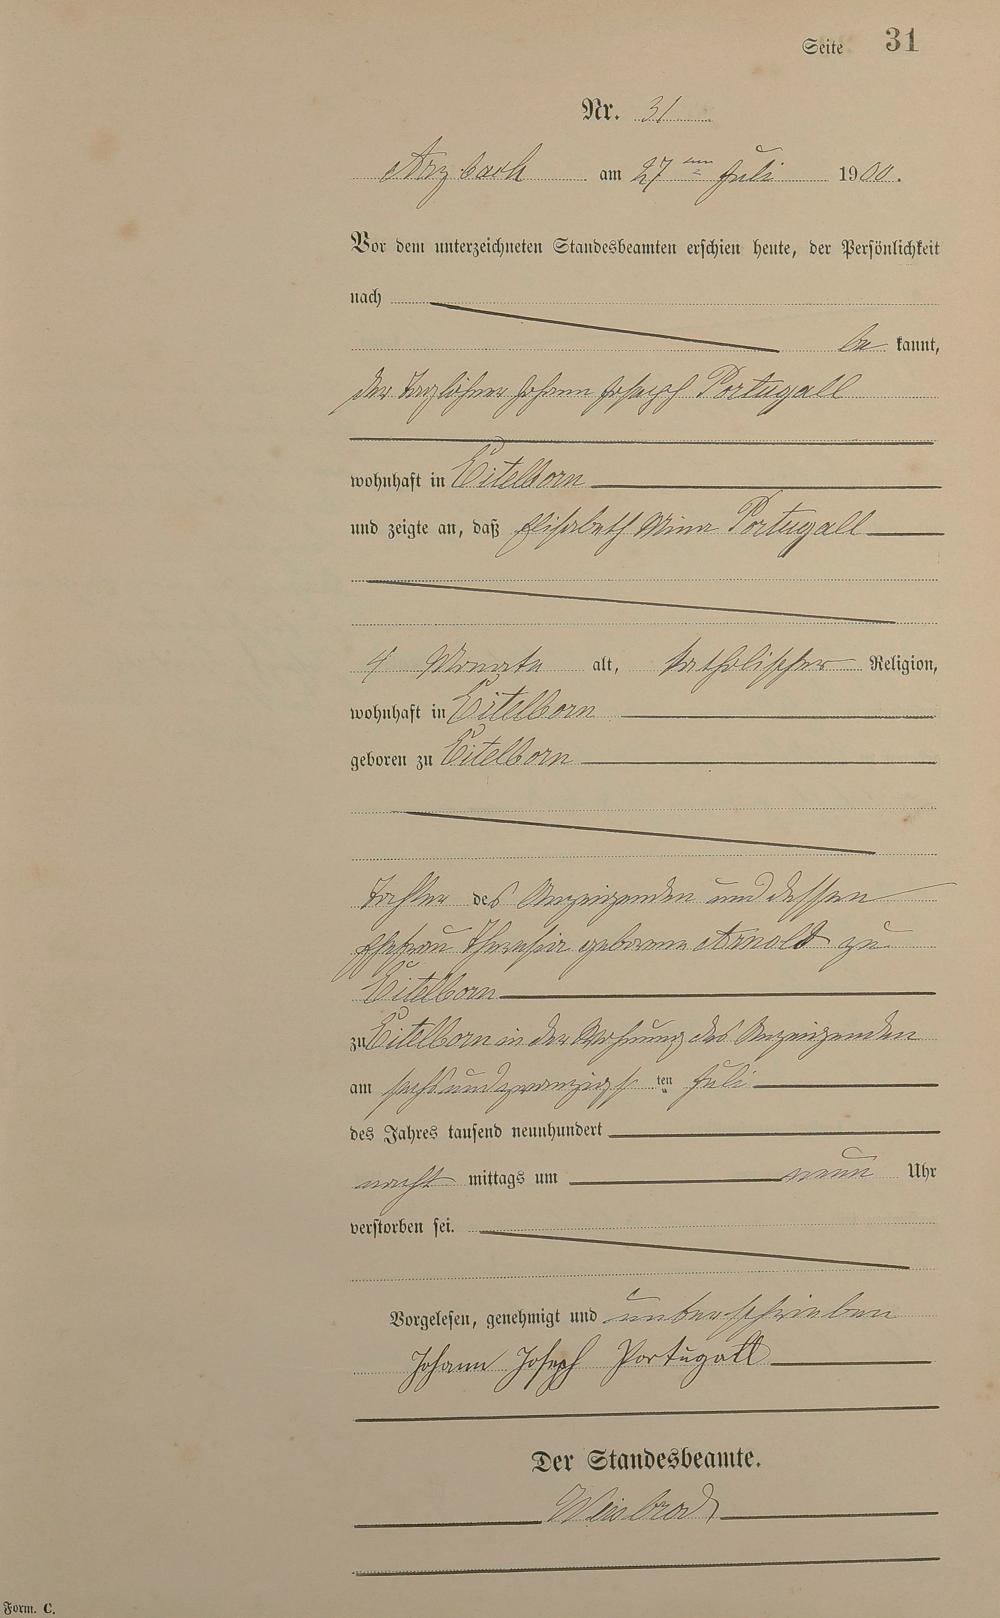 Seite 31
Nr. 31
Arzbach am 27ten Juli 1900.
Vor dem unterzeichneten Standesbeamten erschien heute, der Persönlichkeit
nach
be kannt,
der Taglöhner Johann Joseph Portugall
wohnhaft in Eitelborn
und zeigte an, daß Elisabeth Mina Portugall
4 Monate alt, katholischer Religion,
wohnhaft in Eitelborn
geboren zu Eitelborn
Tochter des Anzeigenden und dessen
Ehefrau Theresia geborene Arnold zu
Eitelborn
zu Eitelborn in der Wohnung des Anzeigenden
am sechsundzwanzigsten Juli
des Jahres tausend neunhundert
nacht mittags um neun Uhr
verstorben sei.
Vorgelesen, genehmigt und unterschrieben
Johann Joseph Portugall
Der Standesbeamte.
Weisbrod
Form. C.